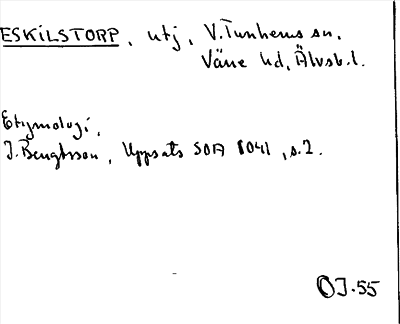 ESKILSTORP, utj, V. Tunhems sn.
Väne hd, Älvsb. l.
Etymologi,
J. Bengtsson, Uppsats SOA 8041, s. 2.
OJ. 55